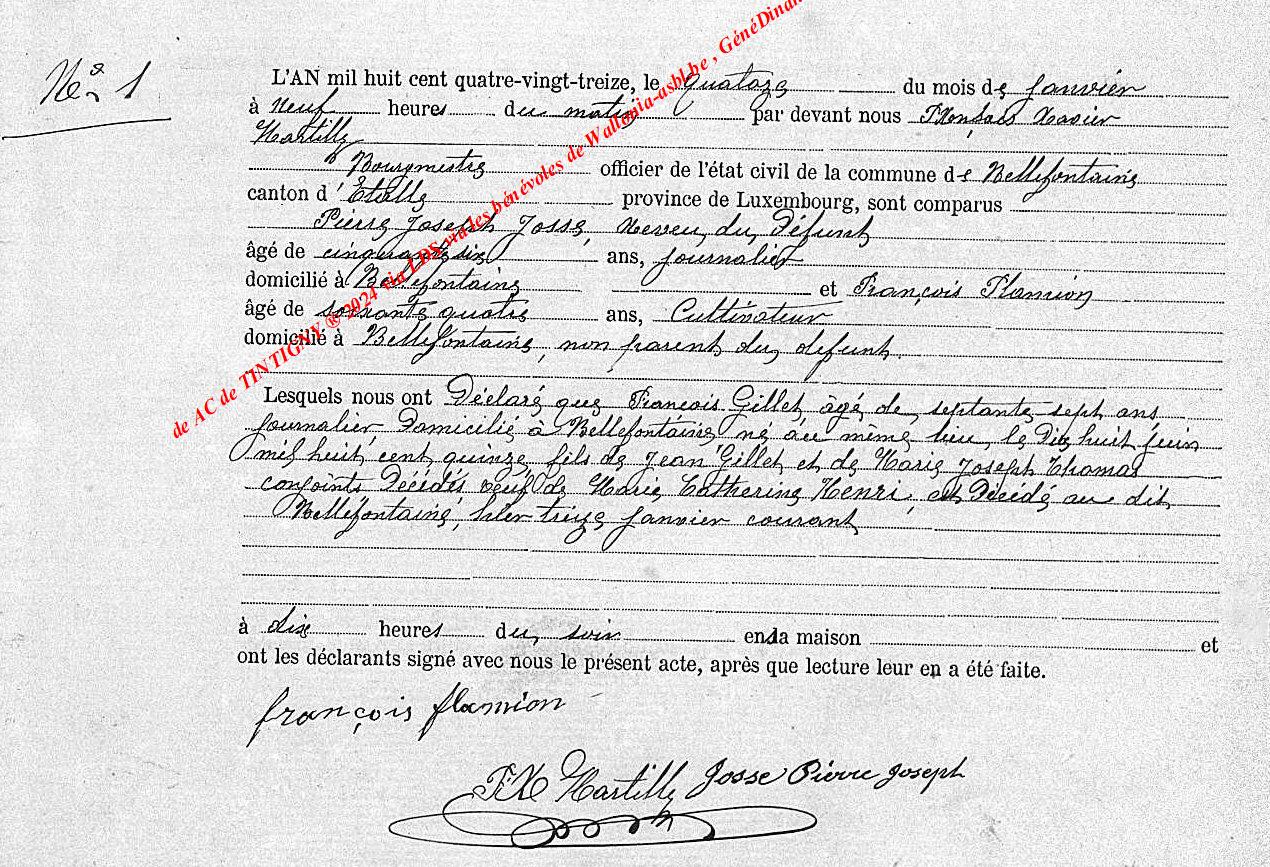 Nº 1
L'AN mil huit cent quatre-vingt-treize, le quatorze du mois de Janvier
à neuf heures du matin par devant nous François Xavier
Hartilly
Bourgmestre officier de l'état civil de la commune de Bellefontaine
canton d'Etalle province de Luxembourg, sont comparus
Pierre Joseph Josse, Neveu du Défunt
âgé de ans, Journalier
domicilié à Bellefontaine et François Flamion
âgé de soixante quatre ans, Cultivateur
domicilié à Bellefontaine, non parent du défunt.
Lesquels nous ont Déclaré que François Gillet, âgé de septante-sept ans
Journalier, Domicilié à Bellefontaine né au même lieu, le Dix huit juin
mil huit cent quinze, fils de Jean Gillet et de Marie Joseph Thomas
conjoints Décédés veuf de Marie Catherine Henri, est Décédé au dit
Bellefontaine, hier treize Janvier courant
à dix heures du soir en sa maison et
ont les déclarants signé avec nous le présent acte, après que lecture leur en a été faite.
françois flamion
FX Hartilly Josse Pierre Joseph
de AC de TINTIGNY ® 2024 via LDS via les bénévoles de Wallonia-asbl.be , GénéDinan